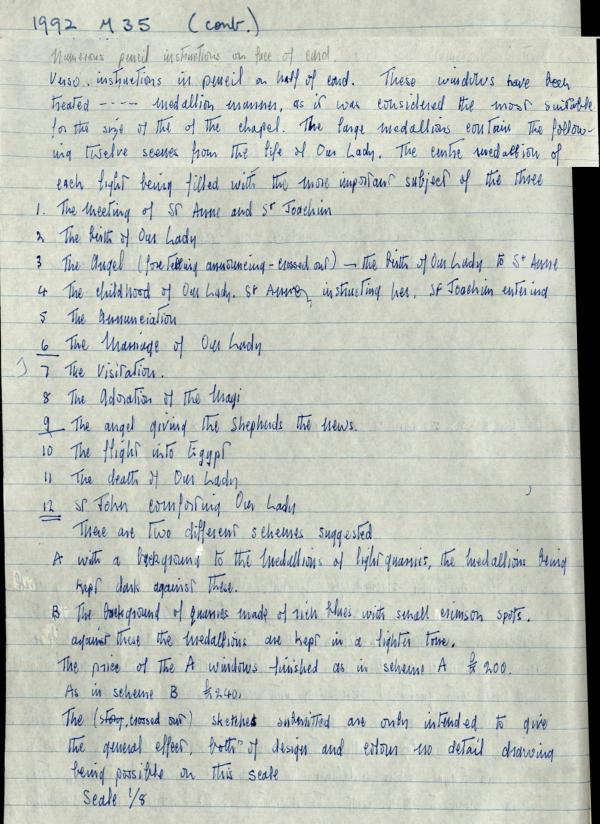 1992 M 35 (cont.)
Numerous pencil instructions on face of card
Verso. instructions in pencil on half of card. These windows have been
treated ----- medallion manner, as it was considered the most suitable
for the size of the of the chapel. The large medallions contain the follow-
ing twelve scenes from the life of Our Lady. The centre medallion of
each light being filled with the more important subject of the three
1. The meeting of St Anne and St Joachim
2 The birth of Our Lady
3 The Angel (foretelling announcing - crossed out) - the birth of Our Lady to St Anne
4 The childhood of Our Lady. St Anne, instructing her, St Joachim entering
5 The Annunciation
6 The Marriage of Our Lady
7 The Visitation.
8 The Adoration of the Magi
9 The angel giving the shepherds the news.
10 The flight into Egypt
11 The death of Our Lady
12 St John comforting Our Lady
There are two different schemes suggested
A with a background to the medallions of light quarries, the medallions being
kept dark against these.
B The background of quarries made of rich blues with small crimson spots.
against these the medallions are kept in a lighter tone.
The price of the A windows finished as in scheme A £200.
As in scheme B £240.
The (crossed out) sketches submitted are only intended to give
the general effect, both of design and colour no detail drawing
being possible on this scale
Scale 1/8